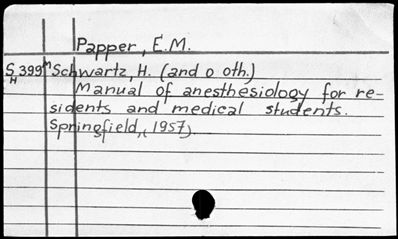 Papper, E.M.
S 399 M Schwartz, H. (and o oth.)
H
Manual of anesthesiology for re-
sidents and medical students.
Springfield, (1957).